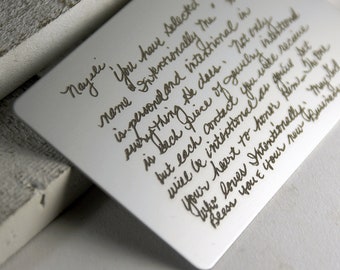 Nayeli
You have selected
name "Intentionally Me"
is personal and intentional in
everything He does. Not only
is each piece of jewelry intentional
but each contact you make because
will be intentional as you
your heart to honor Him the One
who loves Intentionally. May God
Bless you & your new Business